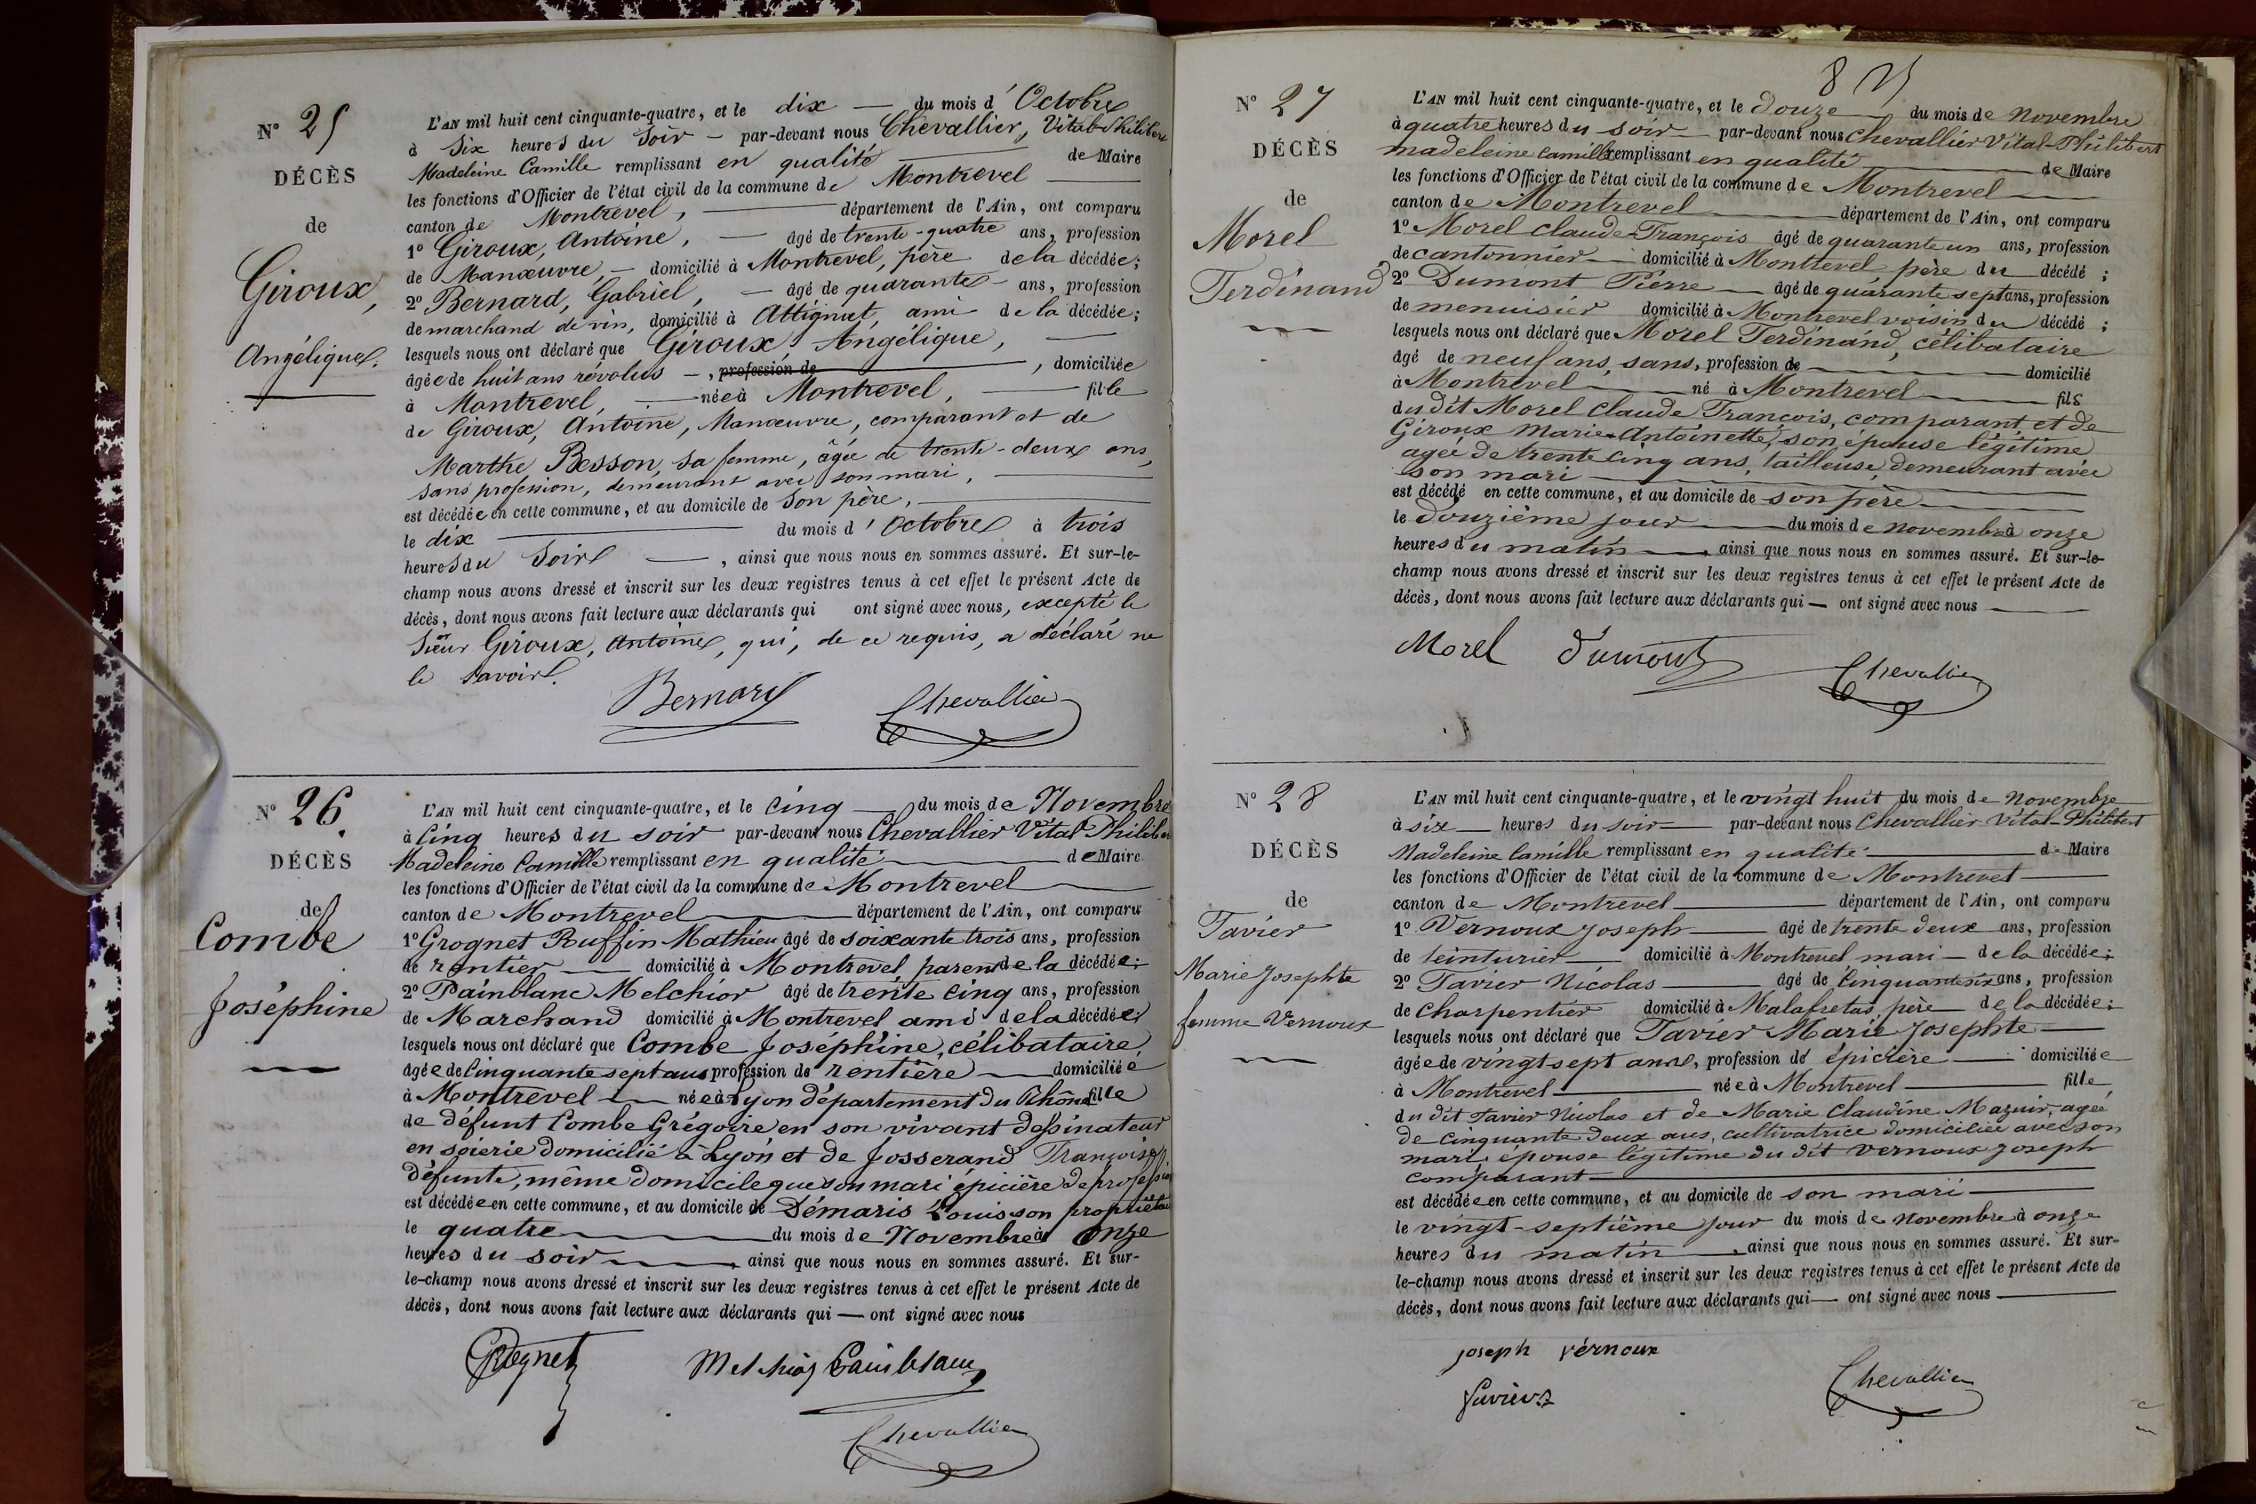 Nº 25
DÉCÈS
de
Giroux,
Angélique.
L'AN mil huit cent cinquante-quatre, et le dix — du mois d'Octobre
à Six heures du Soir — par-devant nous Chevallier, Vital-Philibert
Madeleine Camille remplissant en qualité — de Maire
les fonctions d'Officier de l'état civil de la commune de Montrevel —
canton de Montrevel, — département de l'Ain, ont comparu
1º Giroux, Antoine, — âgé de trente-quatre ans, profession
de Manœuvre, — domicilié à Montrevel, père de la décédée;
2º Bernard, Gabriel, — âgé de quarante — ans, profession
de marchand de vin, domicilié à Attignat, ami de la décédée;
lesquels nous ont déclaré que Giroux, Angélique, —
âgée de huit ans révolus —, profession de —, domiciliée
à Montrevel, — née à Montrevel, — fille
de Giroux, Antoine, Manœuvre, comparant et de
Marthe Besson, sa femme, âgée de trente-deux ans,
sans profession, demeurant avec son mari, —
est décédée en cette commune, et au domicile de son père, —
le dix — du mois d'Octobre à trois
heures du Soir —, ainsi que nous nous en sommes assuré. Et sur-le-
champ nous avons dressé et inscrit sur les deux registres tenus à cet effet le présent Acte de
décès, dont nous avons fait lecture aux déclarants qui ont signé avec nous, excepté le
Sieur Giroux, Antoine, qui, de ce requis, a déclaré ne
le savoir.
Bernard Chevallier
Nº 26.
DÉCÈS
de
Combe
Joséphine
L'AN mil huit cent cinquante-quatre, et le Cinq — du mois de Novembre
à Cinq heures du soir par-devant nous Chevallier Vital Philibert
Madeleine Camille remplissant en qualité — de Maire
les fonctions d'Officier de l'état civil de la commune de Montrevel —
canton de Montrevel — département de l'Ain, ont comparu
1º Grognet Ruffin Mathieu âgé de soixante trois ans, profession
de rentier — domicilié à Montrevel, parent de la décédée;
2º Painblanc Melchior âgé de trente cinq ans, profession
de Marchand domicilié à Montrevel ami de la décédée;
lesquels nous ont déclaré que Combe Joséphine, célibataire,
âgée de Cinquante sept ans profession de rentière — domiciliée
à Montrevel — née à Lyon département du Rhône fille
de défunt Combe Grégoire en son vivant dessinateur
en soierie domicilié à Lyon et de Josserand Françoise
défunte, même domicile que son mari épicière de profession
est décédée en cette commune, et au domicile de Démaris Louis son propriétaire
le quatre — du mois de Novembre à onze
heures du soir — ainsi que nous nous en sommes assuré. Et sur-
le-champ nous avons dressé et inscrit sur les deux registres tenus à cet effet le présent Acte de
décès, dont nous avons fait lecture aux déclarants qui — ont signé avec nous
Grognet Melchior Painblanc
Chevallier
Nº 27
DÉCÈS
de
Morel
Ferdinand
L'AN mil huit cent cinquante-quatre, et le douze — du mois de Novembre
à quatre heures du soir — par-devant nous Chevallier Vital-Philibert
Madeleine Camille remplissant en qualité — de Maire
les fonctions d'Officier de l'état civil de la commune de Montrevel —
canton de Montrevel — département de l'Ain, ont comparu
1º Morel Claude-François âgé de quarante un ans, profession
de cantonnier — domicilié à Montrevel père du décédé;
2º Dumont Pierre — âgé de quarante sept ans, profession
de menuisier domicilié à Montrevel voisin du décédé;
lesquels nous ont déclaré que Morel Ferdinand, célibataire
âgé de neuf ans, sans, profession de — domicilié
à Montrevel — né à Montrevel — fils
du dit Morel Claude François, comparant et de
Giroux Marie-Antoinette, son épouse légitime
agée de trente cinq ans, tailleuse, demeurant avec
son mari —
est décédé en cette commune, et au domicile de son père —
le douzième jour — du mois de novembre à onze
heures du matin —, ainsi que nous nous en sommes assuré. Et sur-le-
champ nous avons dressé et inscrit sur les deux registres tenus à cet effet le présent Acte de
décès, dont nous avons fait lecture aux déclarants qui — ont signé avec nous —
Morel Dumont Chevallier
Nº 28
DÉCÈS
de
Tavier
Marie Josephte
femme Vernoux
L'AN mil huit cent cinquante-quatre, et le vingt huit du mois de Novembre
à six — heures du soir — par-devant nous Chevallier Vital-Philibert
Madeleine Camille remplissant en qualité — de Maire
les fonctions d'Officier de l'état civil de la commune de Montrevel —
canton de Montrevel — département de l'Ain, ont comparu
1º Vernoux Joseph — âgé de trente deux ans, profession
de teinturier — domicilié à Montrevel mari — de la décédée;
2º Tavier Nicolas — âgé de Cinquante six ans, profession
de Charpentier domicilié à Malafretas, père de la décédée;
lesquels nous ont déclaré que Tavier Marie Josephte —
âgée de vingt sept ans, profession de épicière — domiciliée
à Montrevel — née à Montrevel — fille
du dit Tavier Nicolas et de Marie Claudine Mazuir, agée
de Cinquante deux ans, cultivatrice domiciliée avec son
mari, épouse légitime du dit Vernoux Joseph
comparant —
est décédée en cette commune, et au domicile de son mari —
le vingt-septième jour du mois de Novembre à onze
heures du matin —, ainsi que nous nous en sommes assuré. Et sur-
le-champ nous avons dressé et inscrit sur les deux registres tenus à cet effet le présent Acte de
décès, dont nous avons fait lecture aux déclarants qui — ont signé avec nous —
joseph vérnoux Chevallier